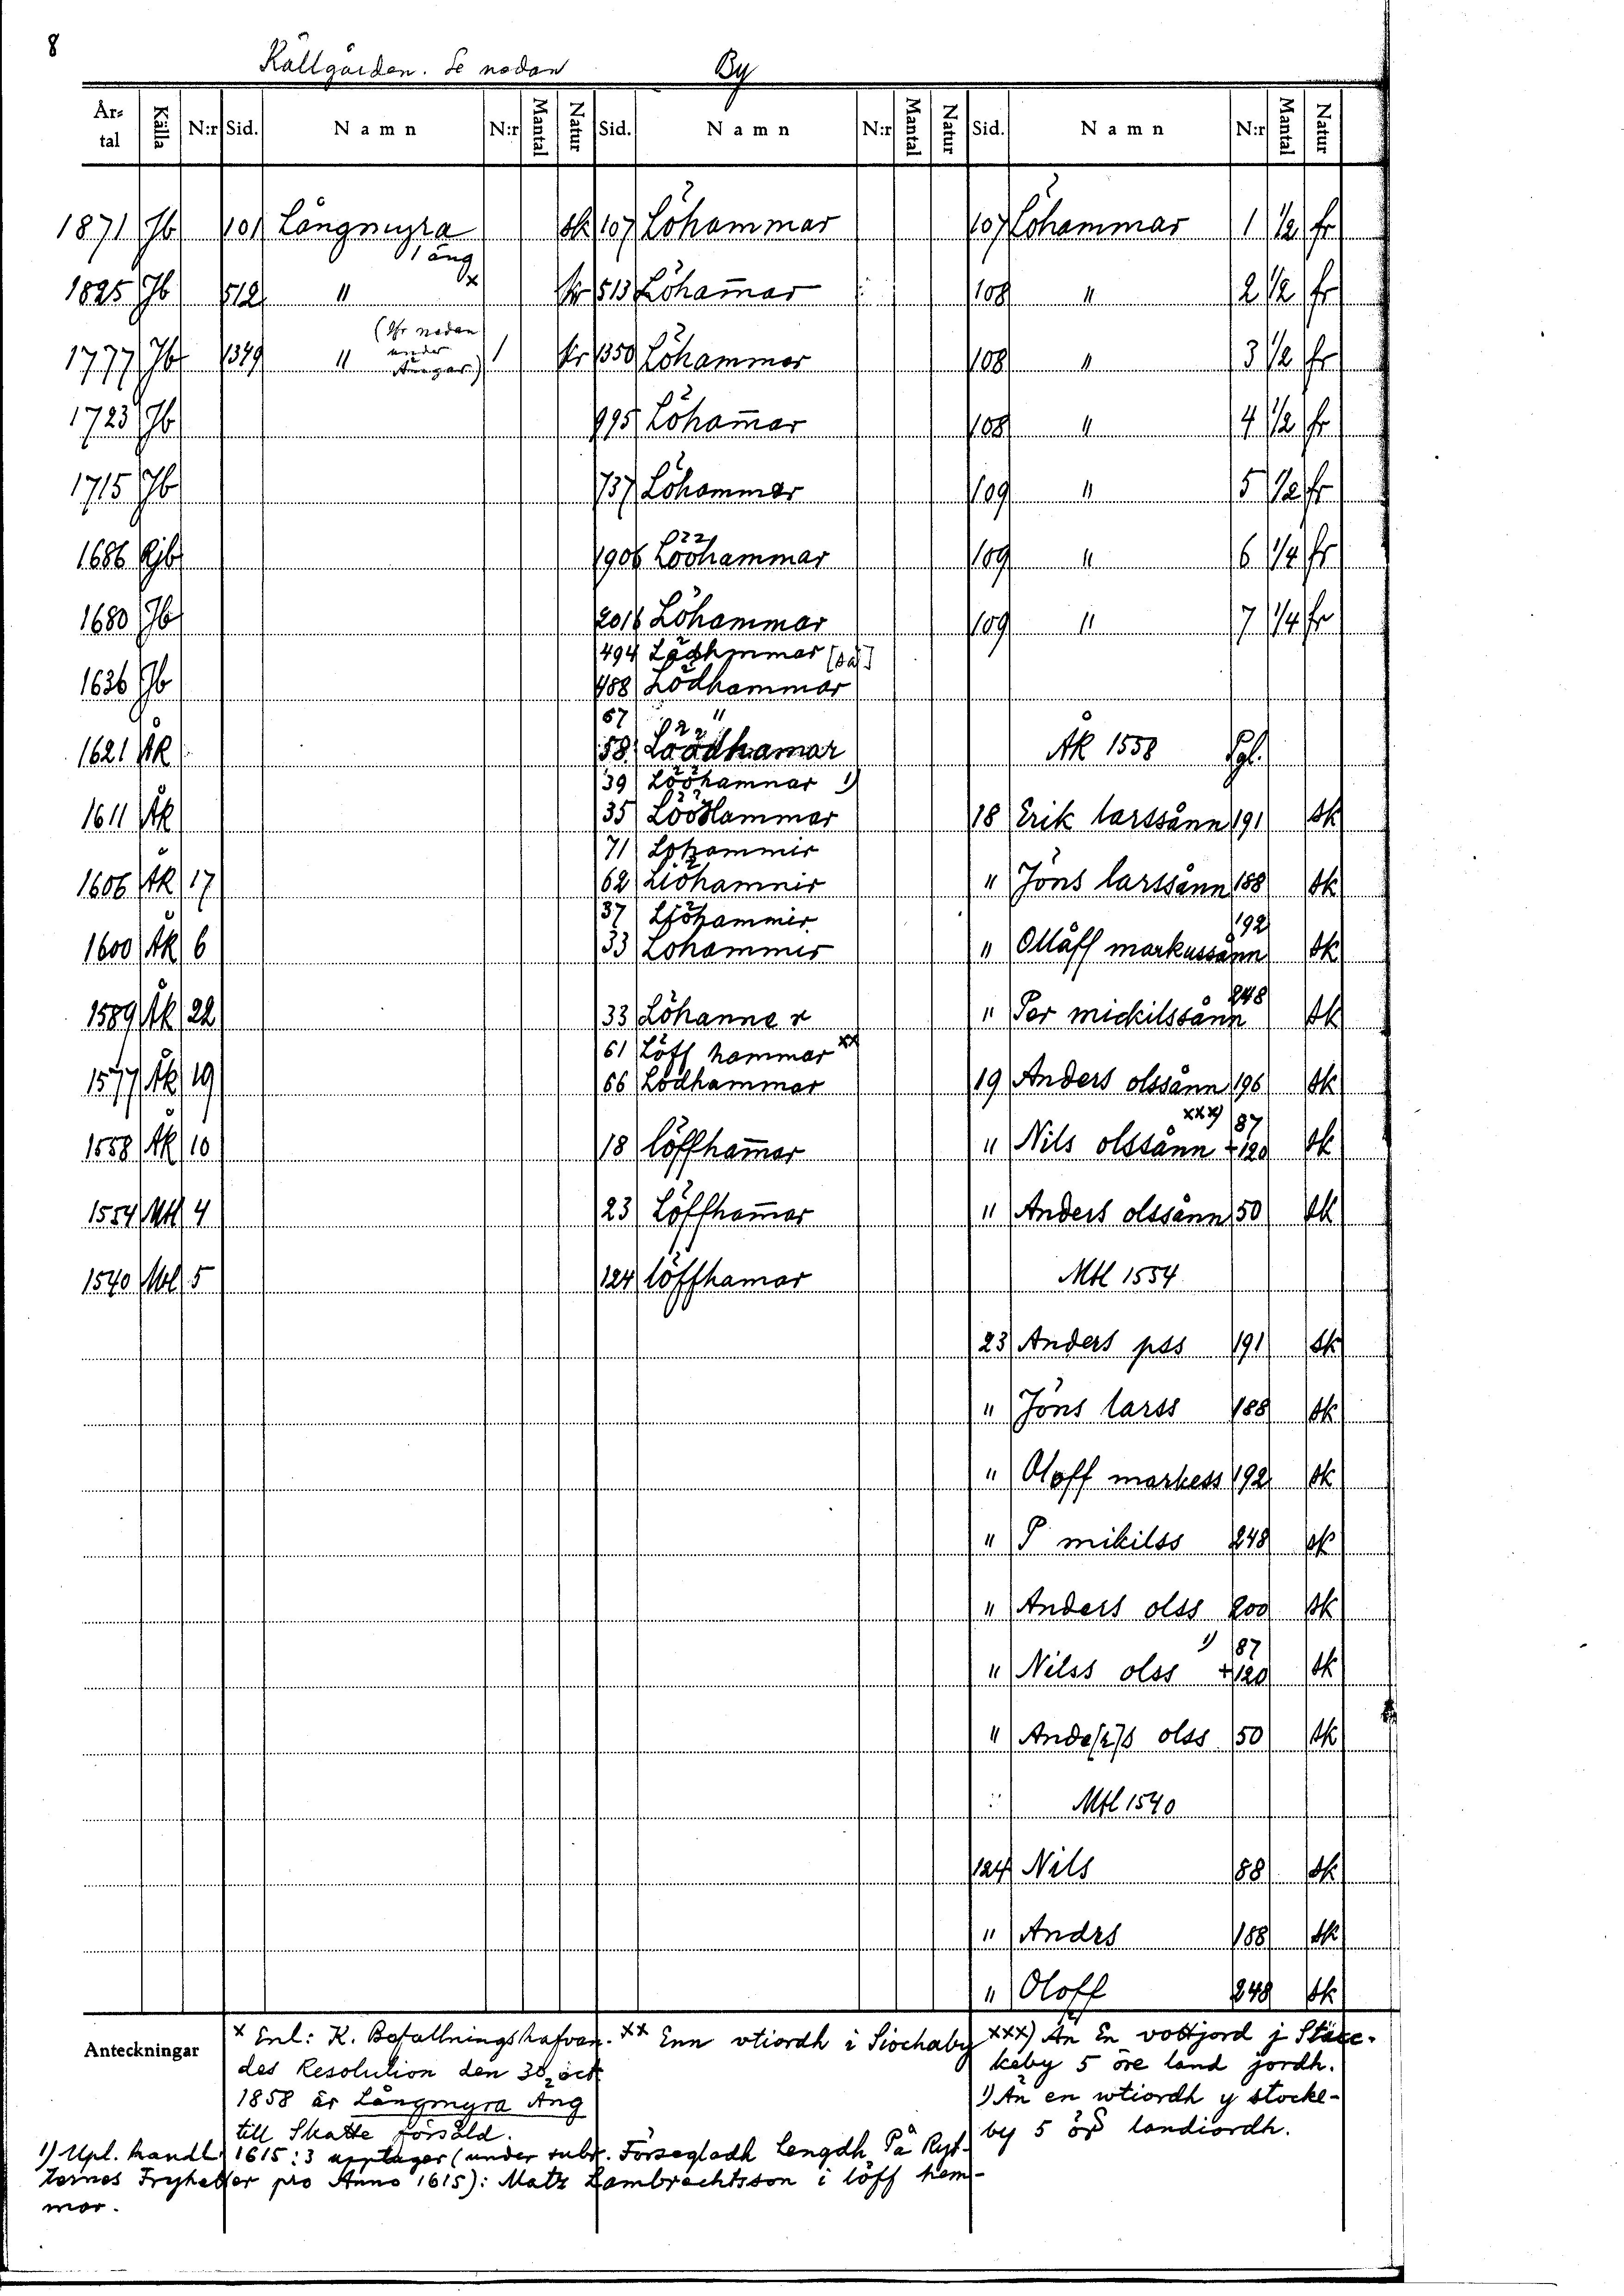 8
Källgården. Se nedan By
Är-tal Källa N:r Sid. Namn N:r Mantal Natur Sid. Namn N:r Mantal Natur Sid. Namn N:r Mantal Natur
1871 Jb 101 Långmyra äng sk 107 Löhammar 107 Löhammar 1 1/2 fr
1825 Jb 512 " x kr 513 Löham̄ar 108 " 2 1/2 fr
1777 Jb 1349 " (Jfr nedan under Ängar) 1 kr 1350 Löhammar 108 " 3 1/2 fr
1723 Jb 995 Löham̄ar 108 " 4 1/2 fr
1715 Jb 737 Löhammar 109 " 5 1/2 fr
1686 Rjb 1906 Lööhammar 109 " 6 1/4 fr
1680 Jb 2016 Löhammar 109 " 7 1/4 fr
494 Lödhmmar [så]
1636 Jb 488 Lödhammar
57 "
1621 Åk 58 Löödhamar Åk 1558 Sgl.
39 Lööhamnar 1)
1611 Åk 35 LööHammar 18 Erik larssånn 191 sk
71 Lohammir
1606 Åk 17 62 Liöhamnir " Jöns larssånn 188 sk
37 Liöhammir
1600 Åk 6 33 Lohammer " Olåff markussånn 192 sk
1589 Åk 22 33 Löhanner " Per mickilssånn 248 sk
61 Löff hammar xx
1577 Åk 19 66 Lödhammar 19 Anders olssånn 196 sk
1558 Åk 10 18 löffham̄ar " Nils olssånn xxx) 87 +120 sk
1554 Mtl 4 23 Löffham̄ar " Anders olssånn 50 sk
1540 Mtl 5 124 löffhamar Mtl 1554
23 Anders pss 191 sk
" Jöns larss 188 sk
" Oloff markess 192 sk
" P mikilss 248 sk
" Anders olss 200 sk
" Nilss olss 1) 87 +120 sk
" Ande[r]s olss 50 sk
Mtl 1540
124 Nils 88 sk
" Andrs 188 sk
" Oloff 248 sk
Anteckningar
x Enl: K. Befallningshafvan-
des Resolution den 30 oct
1858 är Långmyra Äng
till Skatte försåld.
xx Enn vtiordh i Siochaby
xxx) Än En vottjord j Stäce-
keby 5 öre land jordh.
1) Än en wtiordh y stocke-
by 5 öß landiordh.
1) Upl. handl. 1615:3 upptager (under rubr. Försegladh Lengdh På Ryt-
ternes Fryheter pro Anno 1615): Matz Lambrechtsson i löff ham-
mar.